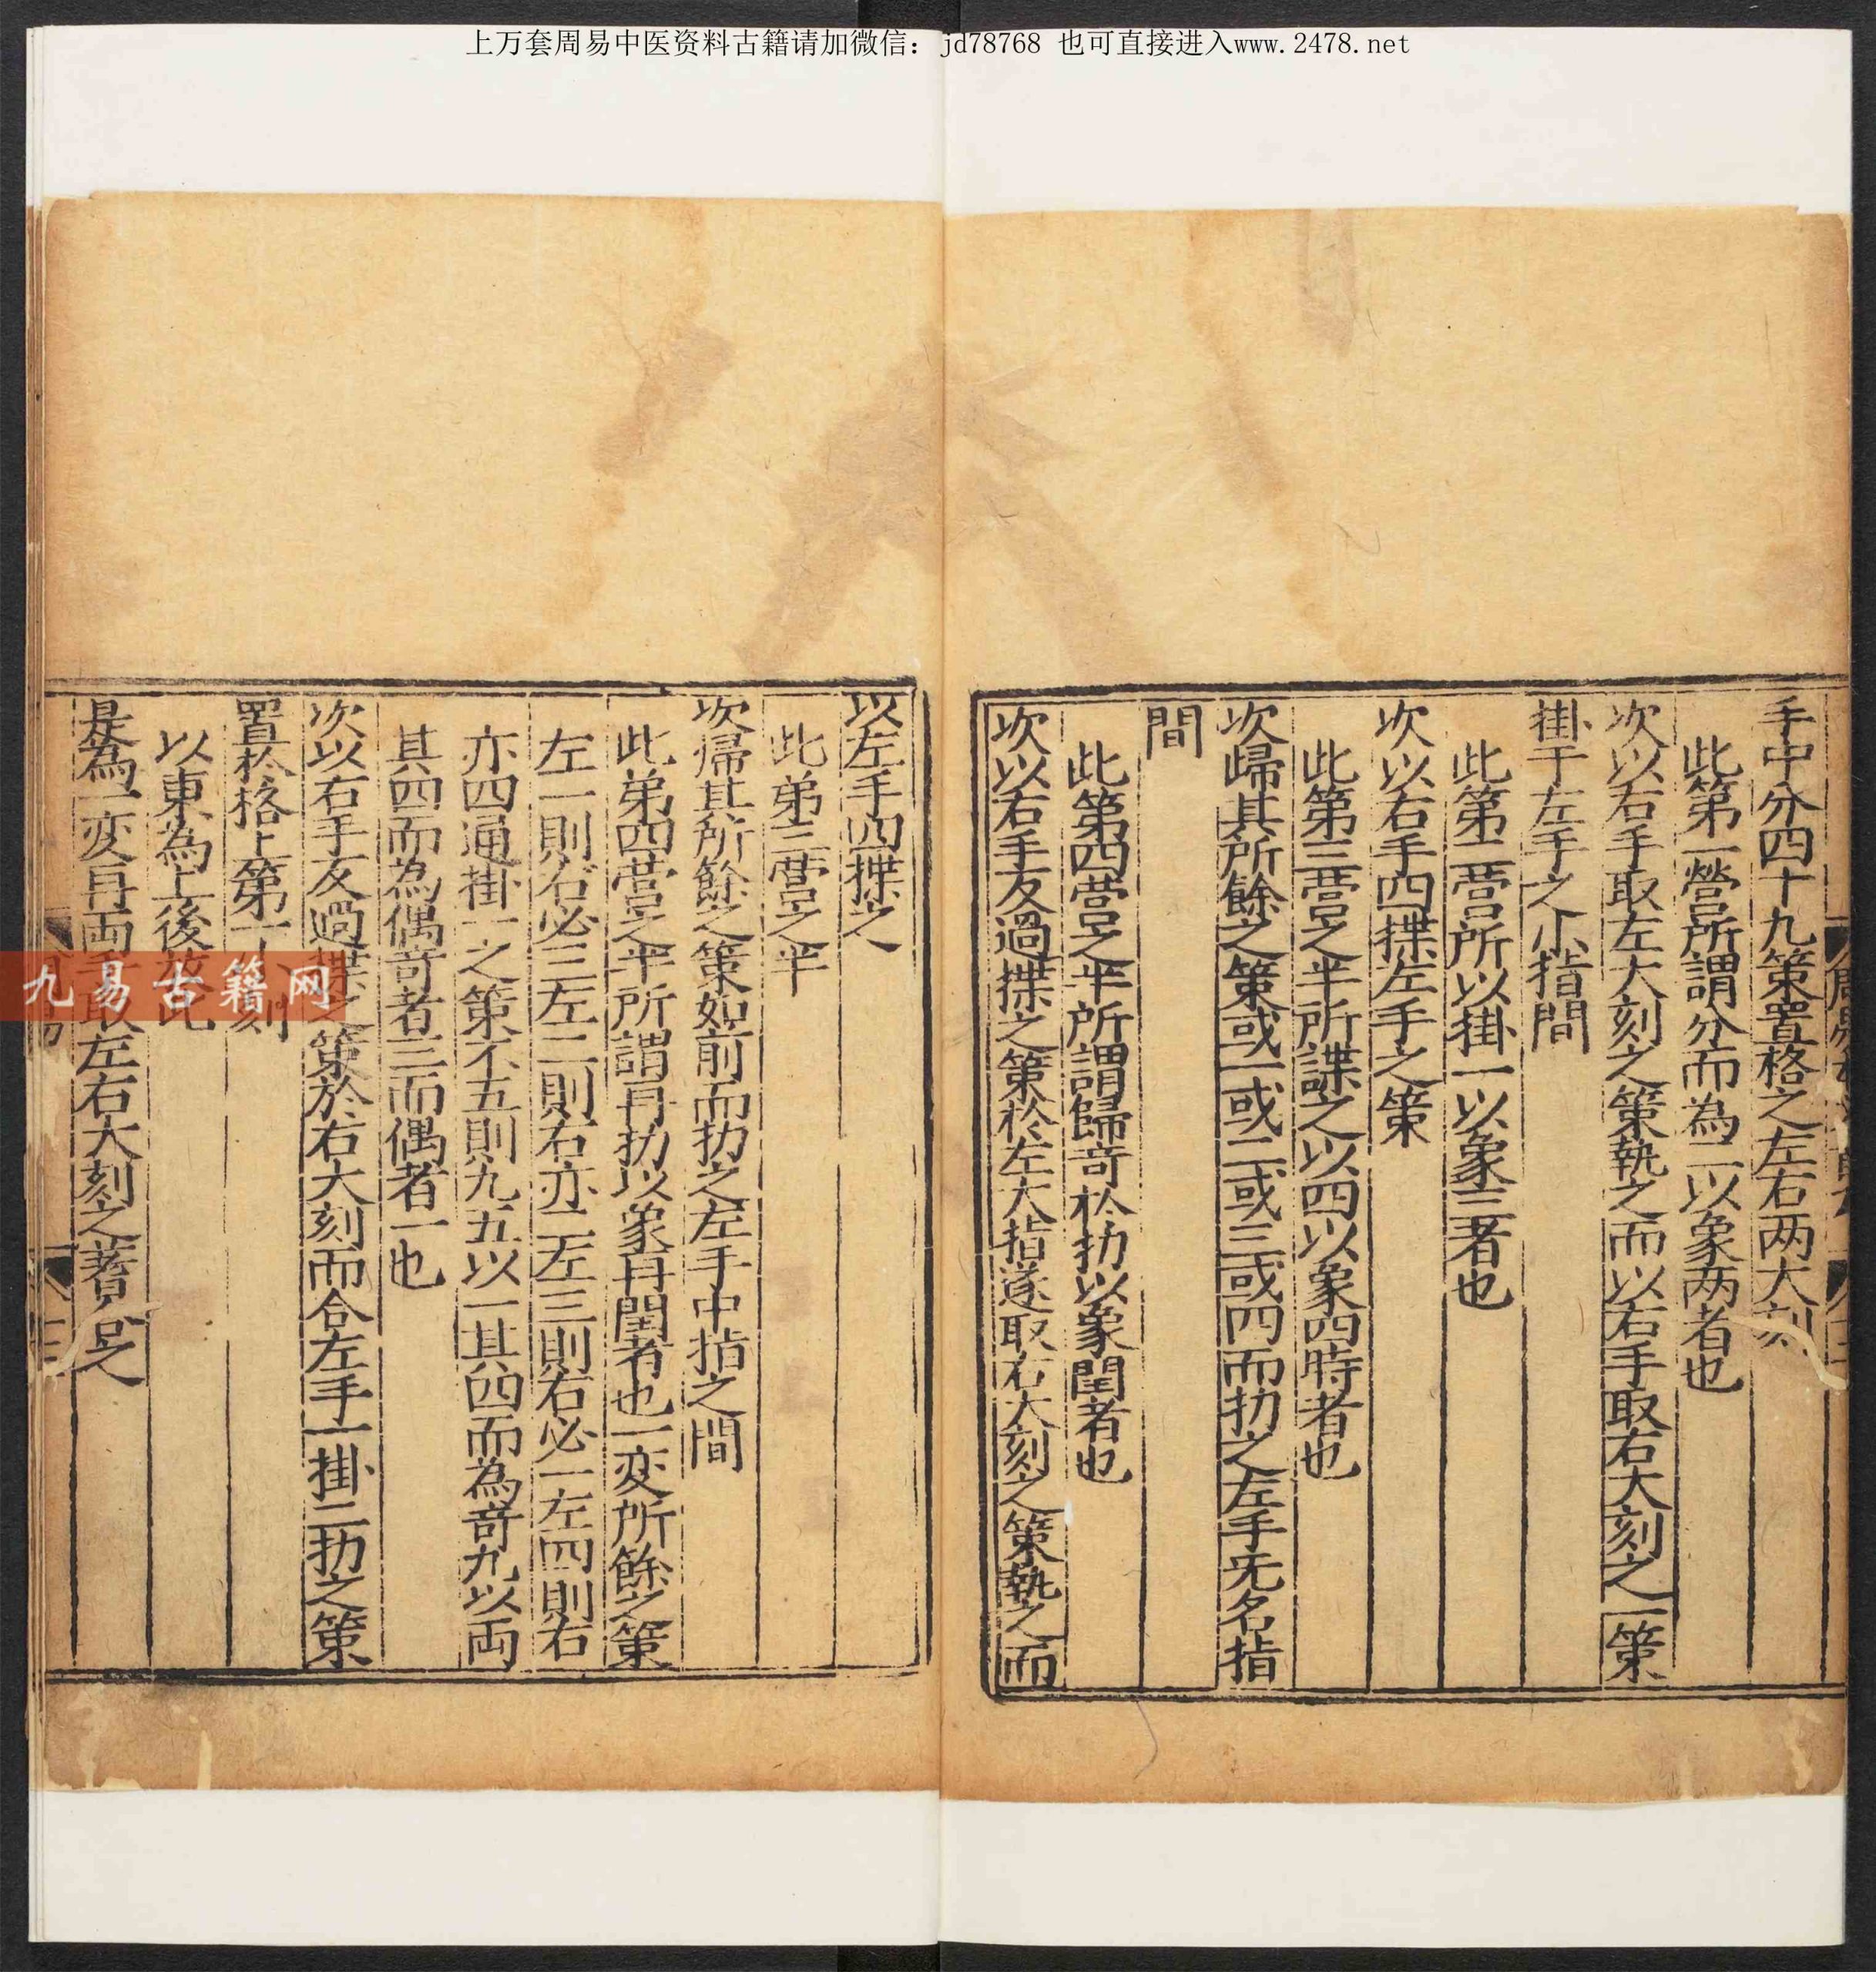 上万套周易中医资料古籍请加微信：jd78768 也可直接进入www.2478.net
手中分四十九策置格之左右两大刻
此第一營所謂分而為二以象两者也
次以右手取左大刻之策執之而以右手取右大刻之一策
掛于左手之小指間
此第二营所以掛一以象三者也
次以右手四揲左手之策
此第三营之半所謂揲之以四以象四時者也
次歸其所餘之策或一或二或三或四而扐之左手无名指
間
此第四营之半所謂歸奇於扐以象閏者也
次以右手反過揲之策於左大指遂取右大刻之策執之而
以左手四揲之
此弟三营之半
次帰其所餘之策如前而扐之左手中指之間
此弟四营之半所謂再扐以象再閏者也一变所餘之策
左一則右必三左二則右亦二左三則右必一左四則右
亦四通掛一之策不五則九五以一其四而為奇九以両
其四而為偶奇者三而偶者一也
次以右手反過揲之策於右大刻而合左手一掛二扐之策
置於格上第一小刻
以東為上後放此
是為一变再両手取左右大刻之蓍合之
九易古籍网